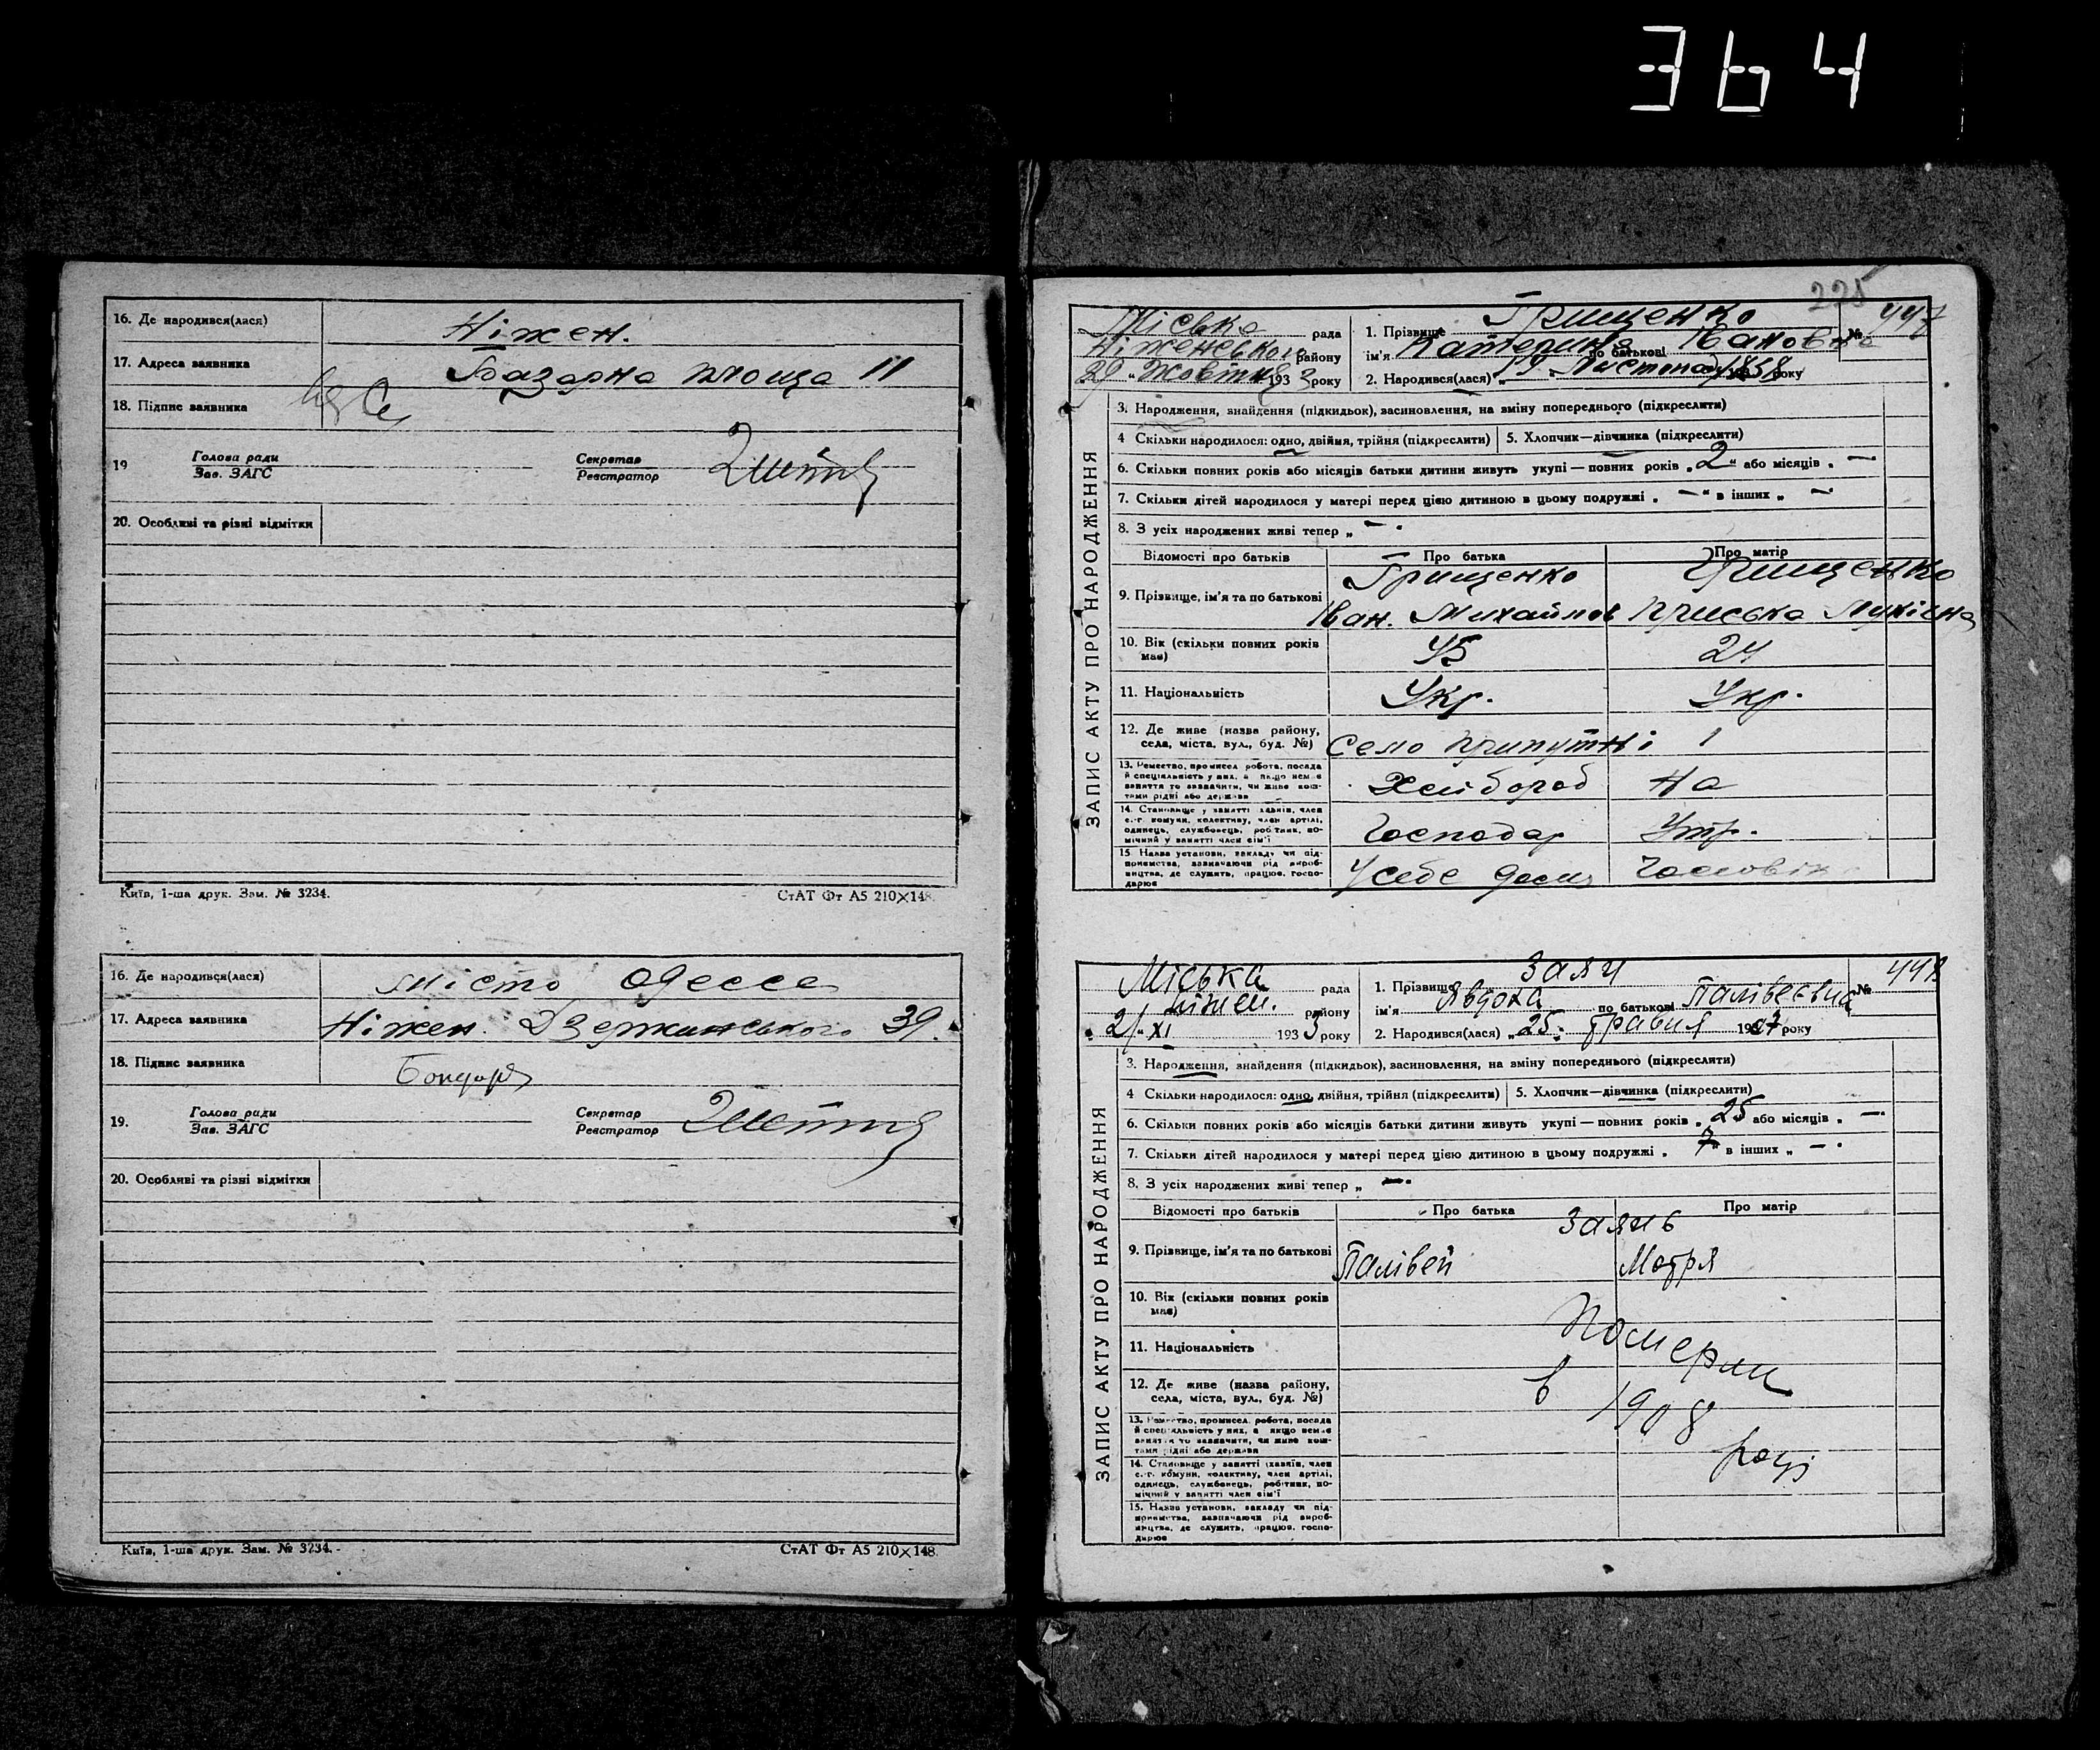 364
16. Де народився(лася) Ніжен.
17. Адреса заявника Базарна площа 11
18. Підпис заявника
19 Голова ради Секретар
Зав. ЗАГС Реєстратор
20. Особливі та різні відмітки
Київ, 1-ша друк. Зам. № 3234. СтАТ Фт А5 210×148.
16. Де народився(лася) місто Одесса
17. Адреса заявника Ніжен. Дзержинського 39.
18. Підпис заявника Бондаря
19. Голова ради Секретар
Зав. ЗАГС Реєстратор
20. Особливі та різні відмітки
Київ, 1-ша друк. Зам. № 3234. СтАТ Фт А5 210×148.
225
Міська рада 1. Прізвище Грищенко № 447
Ніженського району ім'я Катерина по батькові Івановна
29 „ Жовтня 1933 року 2. Народився(лася) „19. Листопад року
ЗАПИС АКТУ ПРО НАРОДЖЕННЯ
3. Народження, знайдення (підкидьок), засиновлення, на зміну попереднього (підкреслити)
4 Скільки народилося: одно, двійня, трійня (підкреслити) 5. Хлопчик—дівчинка (підкреслити)
6. Скільки повних років або місяців батьки дитини живуть укупі — повних років „2“ або місяців „ —
7. Скільки дітей народилося у матері перед цією дитиною в цьому подружжі „ —“ в інших „ —
8. З усіх народжених живі тепер „ — .
Відомості про батьків Про батька Про матір
9. Прізвище, ім'я та по батькові Грищенко Грищенко
Іван. Михайлов Приська Лукісна
10. Вік (скільки повних років має) 45 24
11. Національність Укр. Укр.
12. Де живе (назва району, села, міста, вул., буд. №) Село Припутні 1
13. Ремество, промисел, робота, посада й спеціяльність у них, а якщо немає заняття то зазначити, чи живе коштами рідні або держави Хлібороб На
14. Становище у занятті: хазяїн, член с.-г. комуни, колективу, член артілі, одинець, службовець, робітник, помічний у занятті член сім'ї Господар Утр.
15 Назва установи, закладу чи підприємства, зазначаючи рід виробництва, де служить, працює, господарює У себе дома Чоловік
Міська рада 1. Прізвище Заяч № 448
Ніжен. району ім'я Явдоха по батькові Палівеєвна
21 „ XI 1933 року 2. Народився(лася) „25. травня 1907 року
ЗАПИС АКТУ ПРО НАРОДЖЕННЯ
3. Народження, знайдення (підкидьок), засиновлення, на зміну попереднього (підкреслити)
4 Скільки народилося: одно, двійня, трійня (підкреслити) 5. Хлопчик—дівчинка (підкреслити)
6. Скільки повних років або місяців батьки дитини живуть укупі — повних років „25 або місяців „ —.
7. Скільки дітей народилося у матері перед цією дитиною в цьому подружжі „ 7“ в інших „ — .
8. З усіх народжених живі тепер „ —.
Відомості про батьків Про батька Про матір
Заячь
9. Прізвище, ім'я та по батькові Палівей Мотря
10. Вік (скільки повних років має)
11. Національність
12. Де живе (назва району, села, міста, вул., буд. №)
13. Ремество, промисел, робота, посада й спеціяльність у них, а якщо немає заняття то зазначити, чи живе коштами рідні або держави
14. Становище у занятті: хазяїн, член с.-г. комуни, колективу, член артілі, одинець, службовець, робітник, помічний у занятті член сім'ї
15. Назва установи, закладу чи підприємства, зазначаючи рід виробництва, де служить, працює, господарює
Померли
в 1908
році